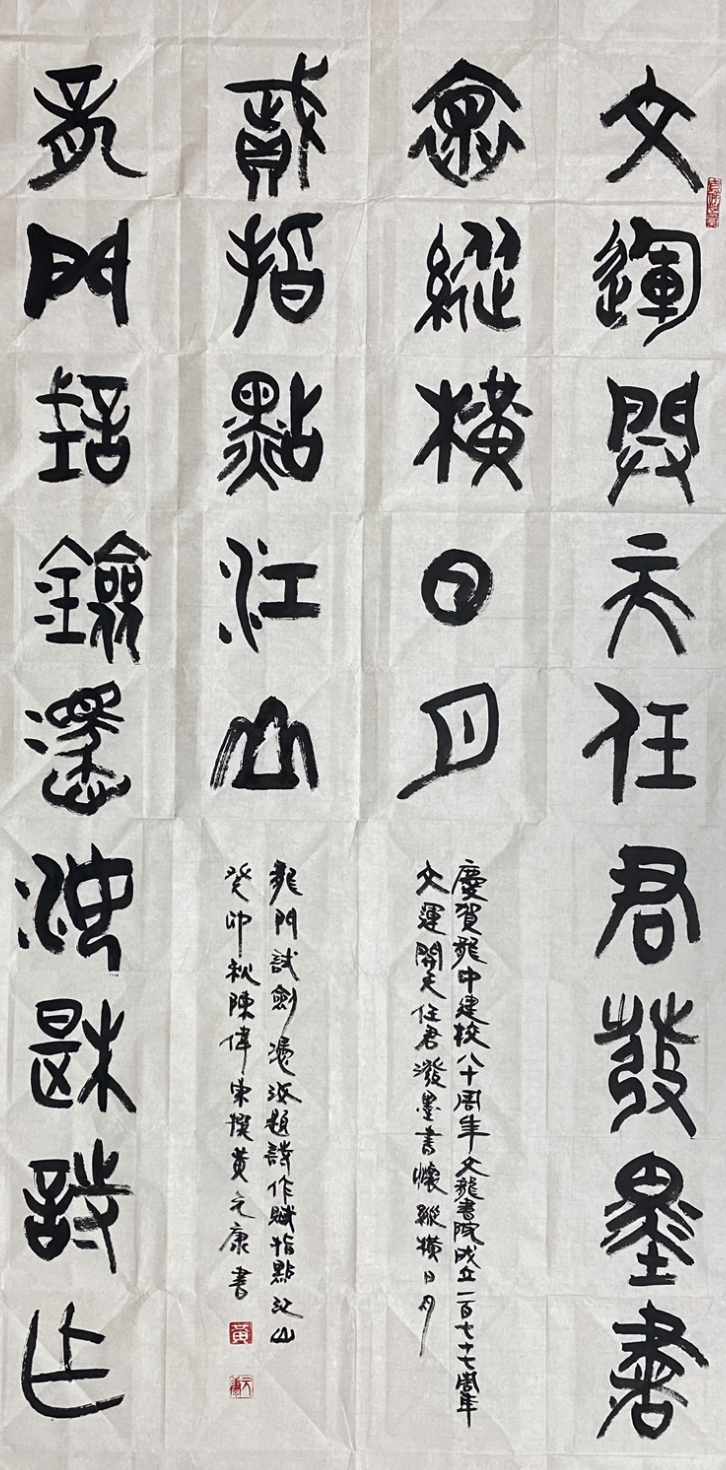 文運開天任君發墨書
懷縱橫日月
慶賀龍中建校八十周年文龍書院成立一百七十七周年
文運開天任君潑墨書懷縱橫日月
龍門試劍憑汝題詩作
賦指點江山
龍門試劍憑汝題詩作賦指點江山
癸卯秋陳偉東撰黃元康書
黃
元康